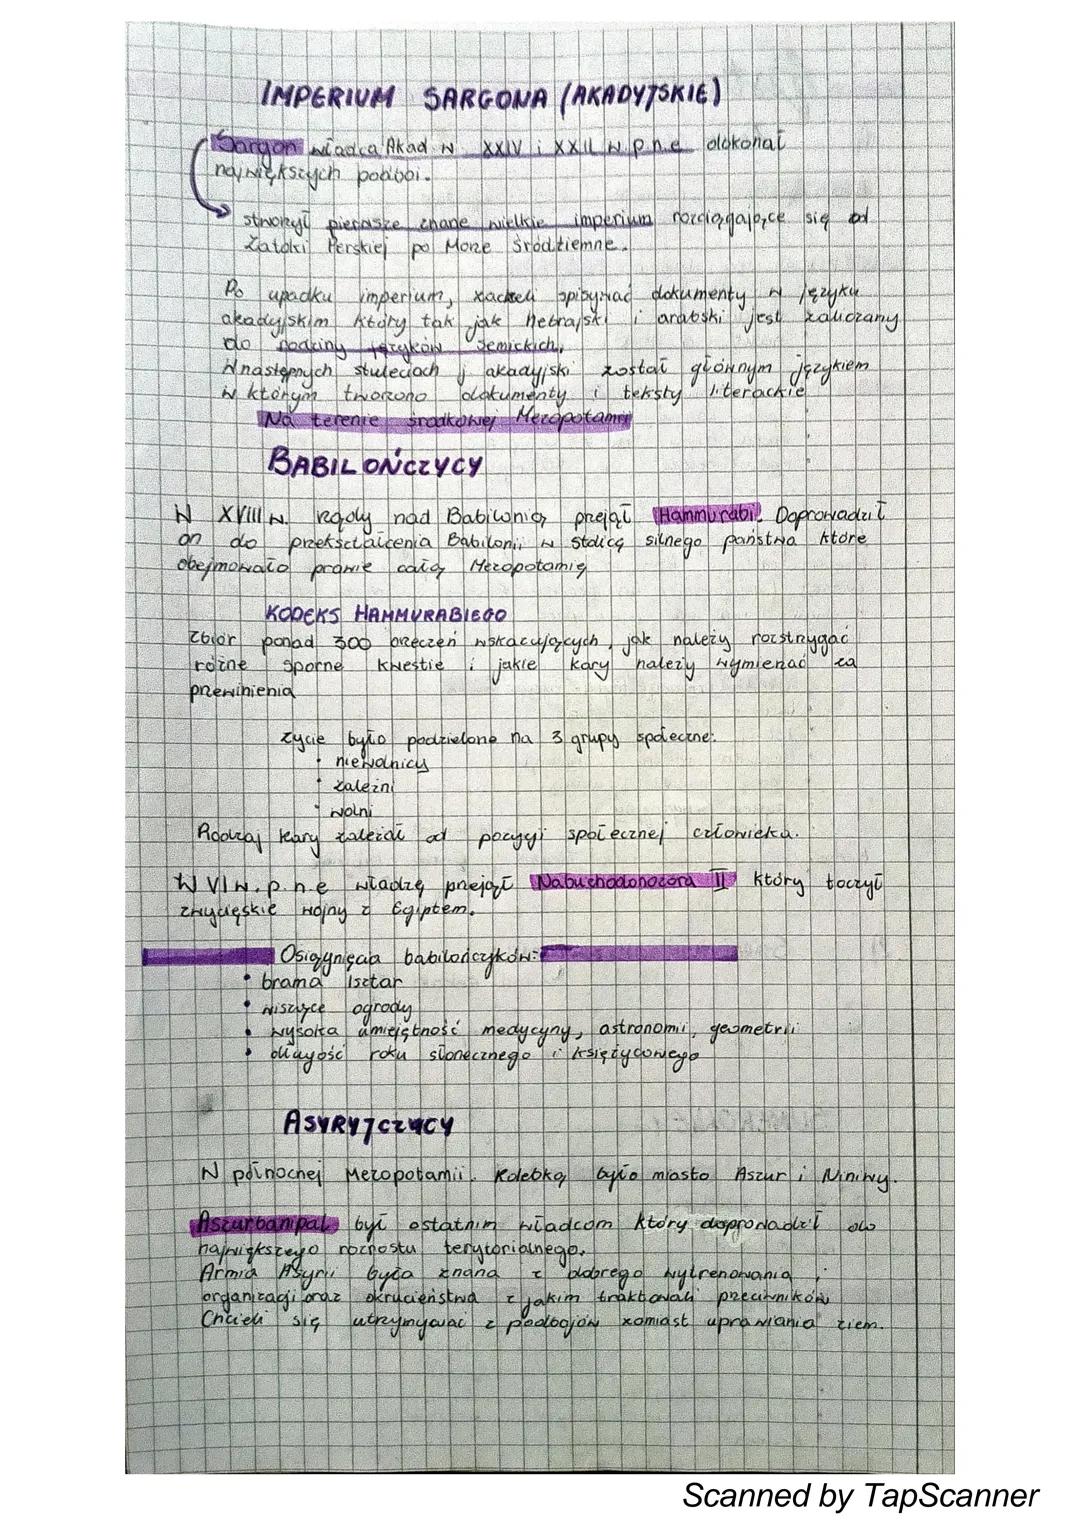 IMPERIUM SARGONA (AKADYJSKIE)
Sargon władca Akad w XXIV i XXIII w p.n.e dokonał
największych podboi.
stworzył pierwsze znane wielkie imperium rozciągające się od
Zatoki Perskiej po Morze Śródziemne.
Po upadku imperium, zaczęli spisywać dokumenty w języku
akadyjskim który tak jak hebrajski i arabski jest zaliczany
do rodziny języków semickich,
W następnych stuleciach j akadyjski został głównym językiem
w którym tworzono dokumenty i teksty literackie
Na terenie środkowej Mezopotamii
BABILOŃCZYCY
W XVIII w. rządy nad Babilonią przejął Hammurabi. Doprowadził
on do przekształcenia Babilonii w stolicę silnego państwa które
obejmowało prawie całą Mezopotamię
KODEKS HAMMURABIEGO
Zbiór ponad 300 orzeczeń wskazujących, jak należy rozstrzygać
różne sporne kwestie i jakie kary należy wymierzać za
przewinienia
Życie było podzielone na 3 grupy społeczne:
• niewolnicy
• zależni
• wolni
Rodzaj kary zależał od pozycji społecznej człowieka.
W VI w. p.n.e władzę przejął Nabuchodonozora II który toczył
zwycięskie wojny z Egiptem.
Osiągnięcia babilończyków:
• brama Isztar
• wiszące ogrody
• wysoka umiejętność medycyny, astronomii, geometrii
• długość roku słonecznego i księżycowego
ASYRYJCZYCY
W północnej Mezopotamii. Kolebką było miasto Aszur i Niniwy.
Aszurbanipal był ostatnim władcom który doprowadził do
największego rozrostu terytorialnego.
Armia Asyrii była znana z dobrego wytrenowania,
organizacji oraz okrucieństwa z jakim traktowali przeciwników
Chcieli się utrzymywać z podbojów zamiast uprawiania ziem.
Scanned by TapScanner